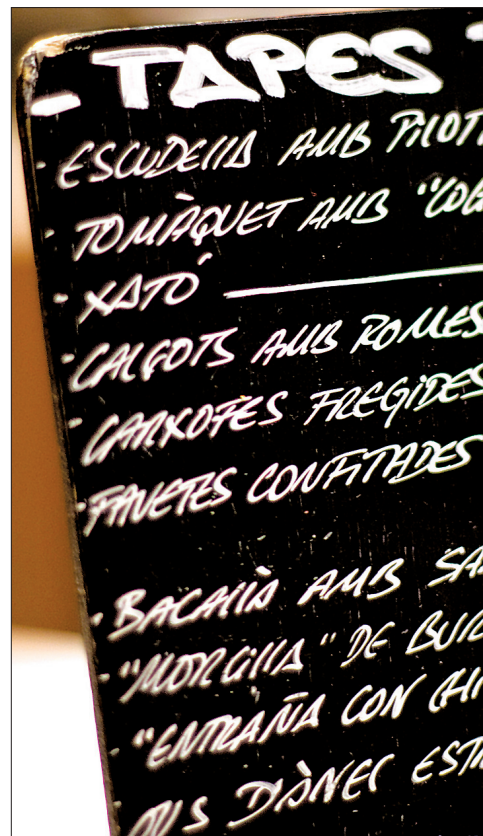 - TAPES -
- ESCUDELLA AMB PILOT
- TOMÀQUET AMB "COB
- XATÓ
- CALÇOTS AMB ROMES
- CARXOFES FREGIDES
- FAVETES CONFITADES
- BACALLÀ AMB SA
- "MORCILLA" DE BUR
- "ENTRAÑA CON CHI
- OUS D'ÀNEC EST